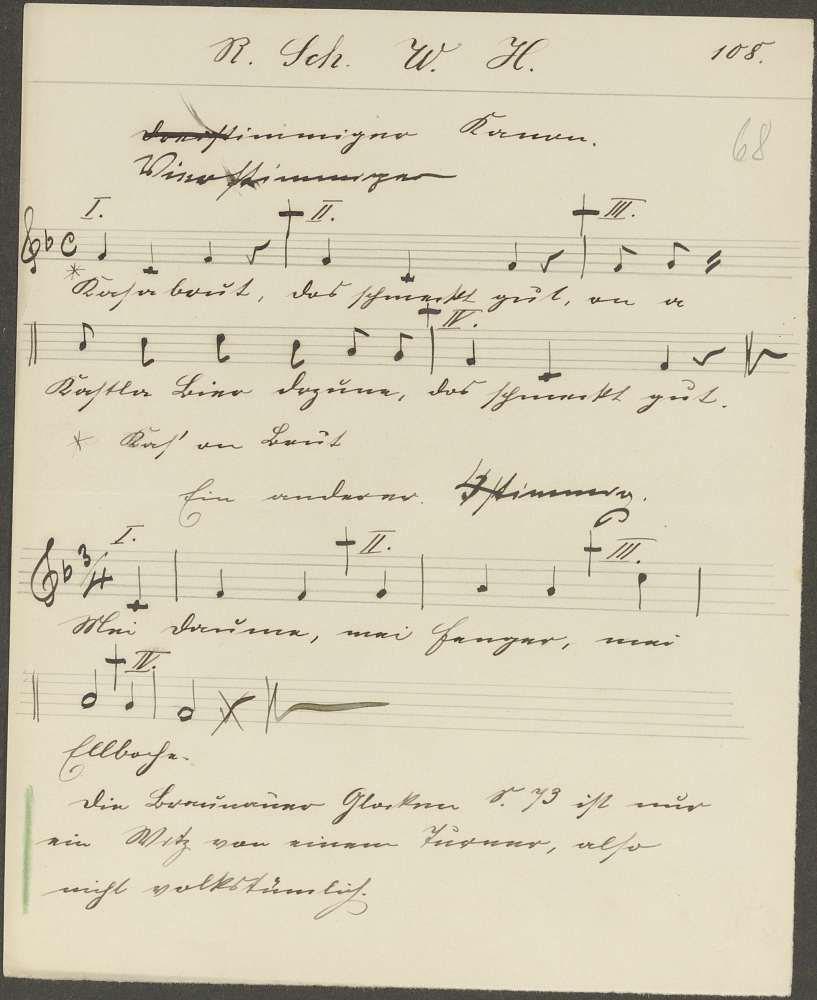 R. Sch. W. H. 108.
68
Dreistimmiger Kanon.
Vierstimmiger
I. II. III.
* Kasabrut, das schmeckt gut, on a
IV.
Kastla Bier dozune, das schmeckt gut.
* Kas' on Brut
Ein anderer. 4stimmig.
I. II. III.
Mei Daume, mei Fenger, mei
IV.
Ellboche.
Die Braunauer Glocken S. 73 ist nur
ein Witz von einem Turner, also
nicht volkstümlich.